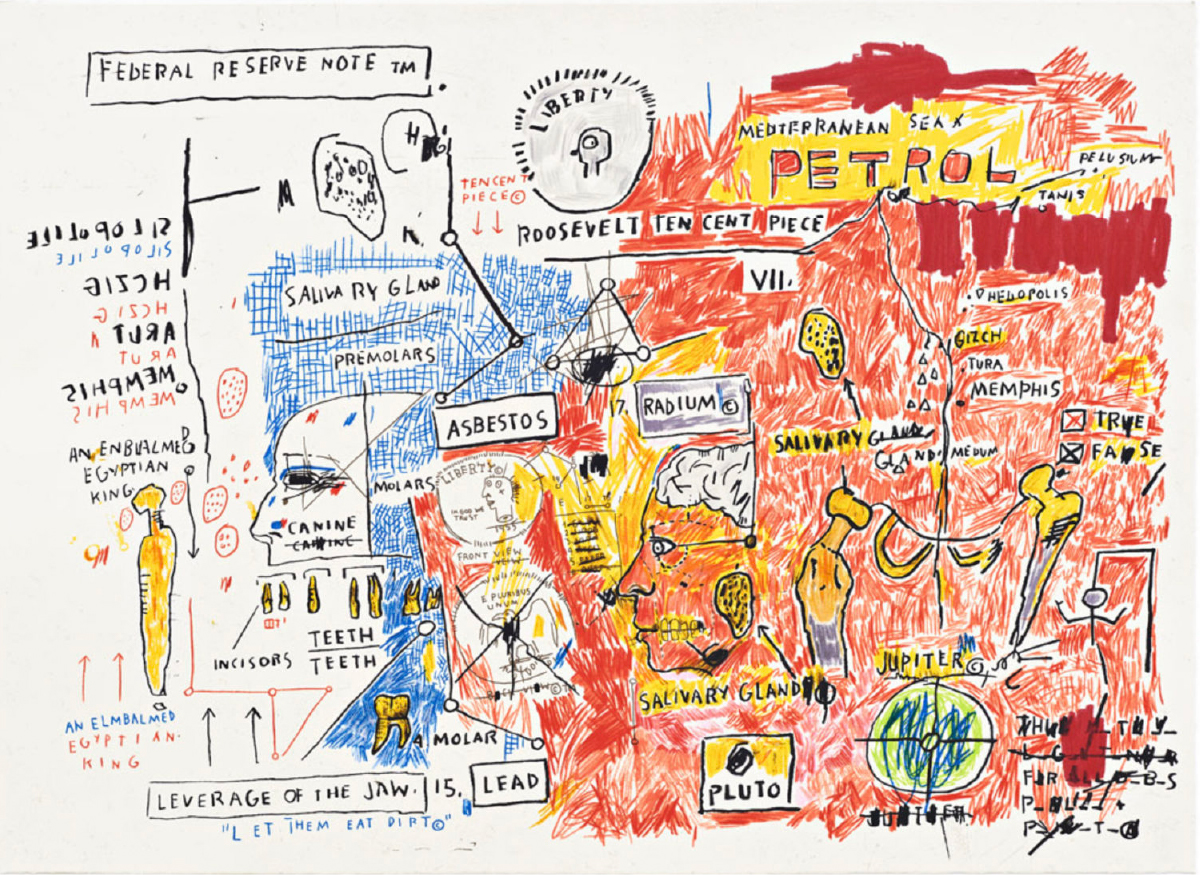 FEDERAL RESERVE NOTE TM
LIBERTY
MEDITERRANEAN SEA X
PETROL
PELUSIUM
TANIS
TEN CENT
PIECE©
ROOSEVELT TEN CENT PIECE
VII.
SILOPOLILE
SILOPOLILE
HCZIG
HCZIG
ARUT
ARUT
MEMPHIS
MEMPHIS
SALIVARY GLAND
PREMOLARS
ASBESTOS
17. RADIUM ©
HELIOPOLIS
GIZCH
TURA
MEMPHIS
TRUE
FALSE
SALIVARY GLAND
GLAND.
MEDUM
AN ENBVALMED
EGYPTIAN
KING.
MOLARS
LIBERTY©
IN GOD WE
TRUST
1955
FRONT VIEW
VIEW
CANINE
CANINE
E PLURIBUS
UNUM
INCISORS
TEETH
TEETH
JUPITER©
SALIVARY GLAND
AN ELMBALMED
EGYPTIAN.
KING
A MOLAR
LEVERAGE OF THE JAW.
15. LEAD
PLUTO
JUPITER
"LET THEM EAT DIRT©"